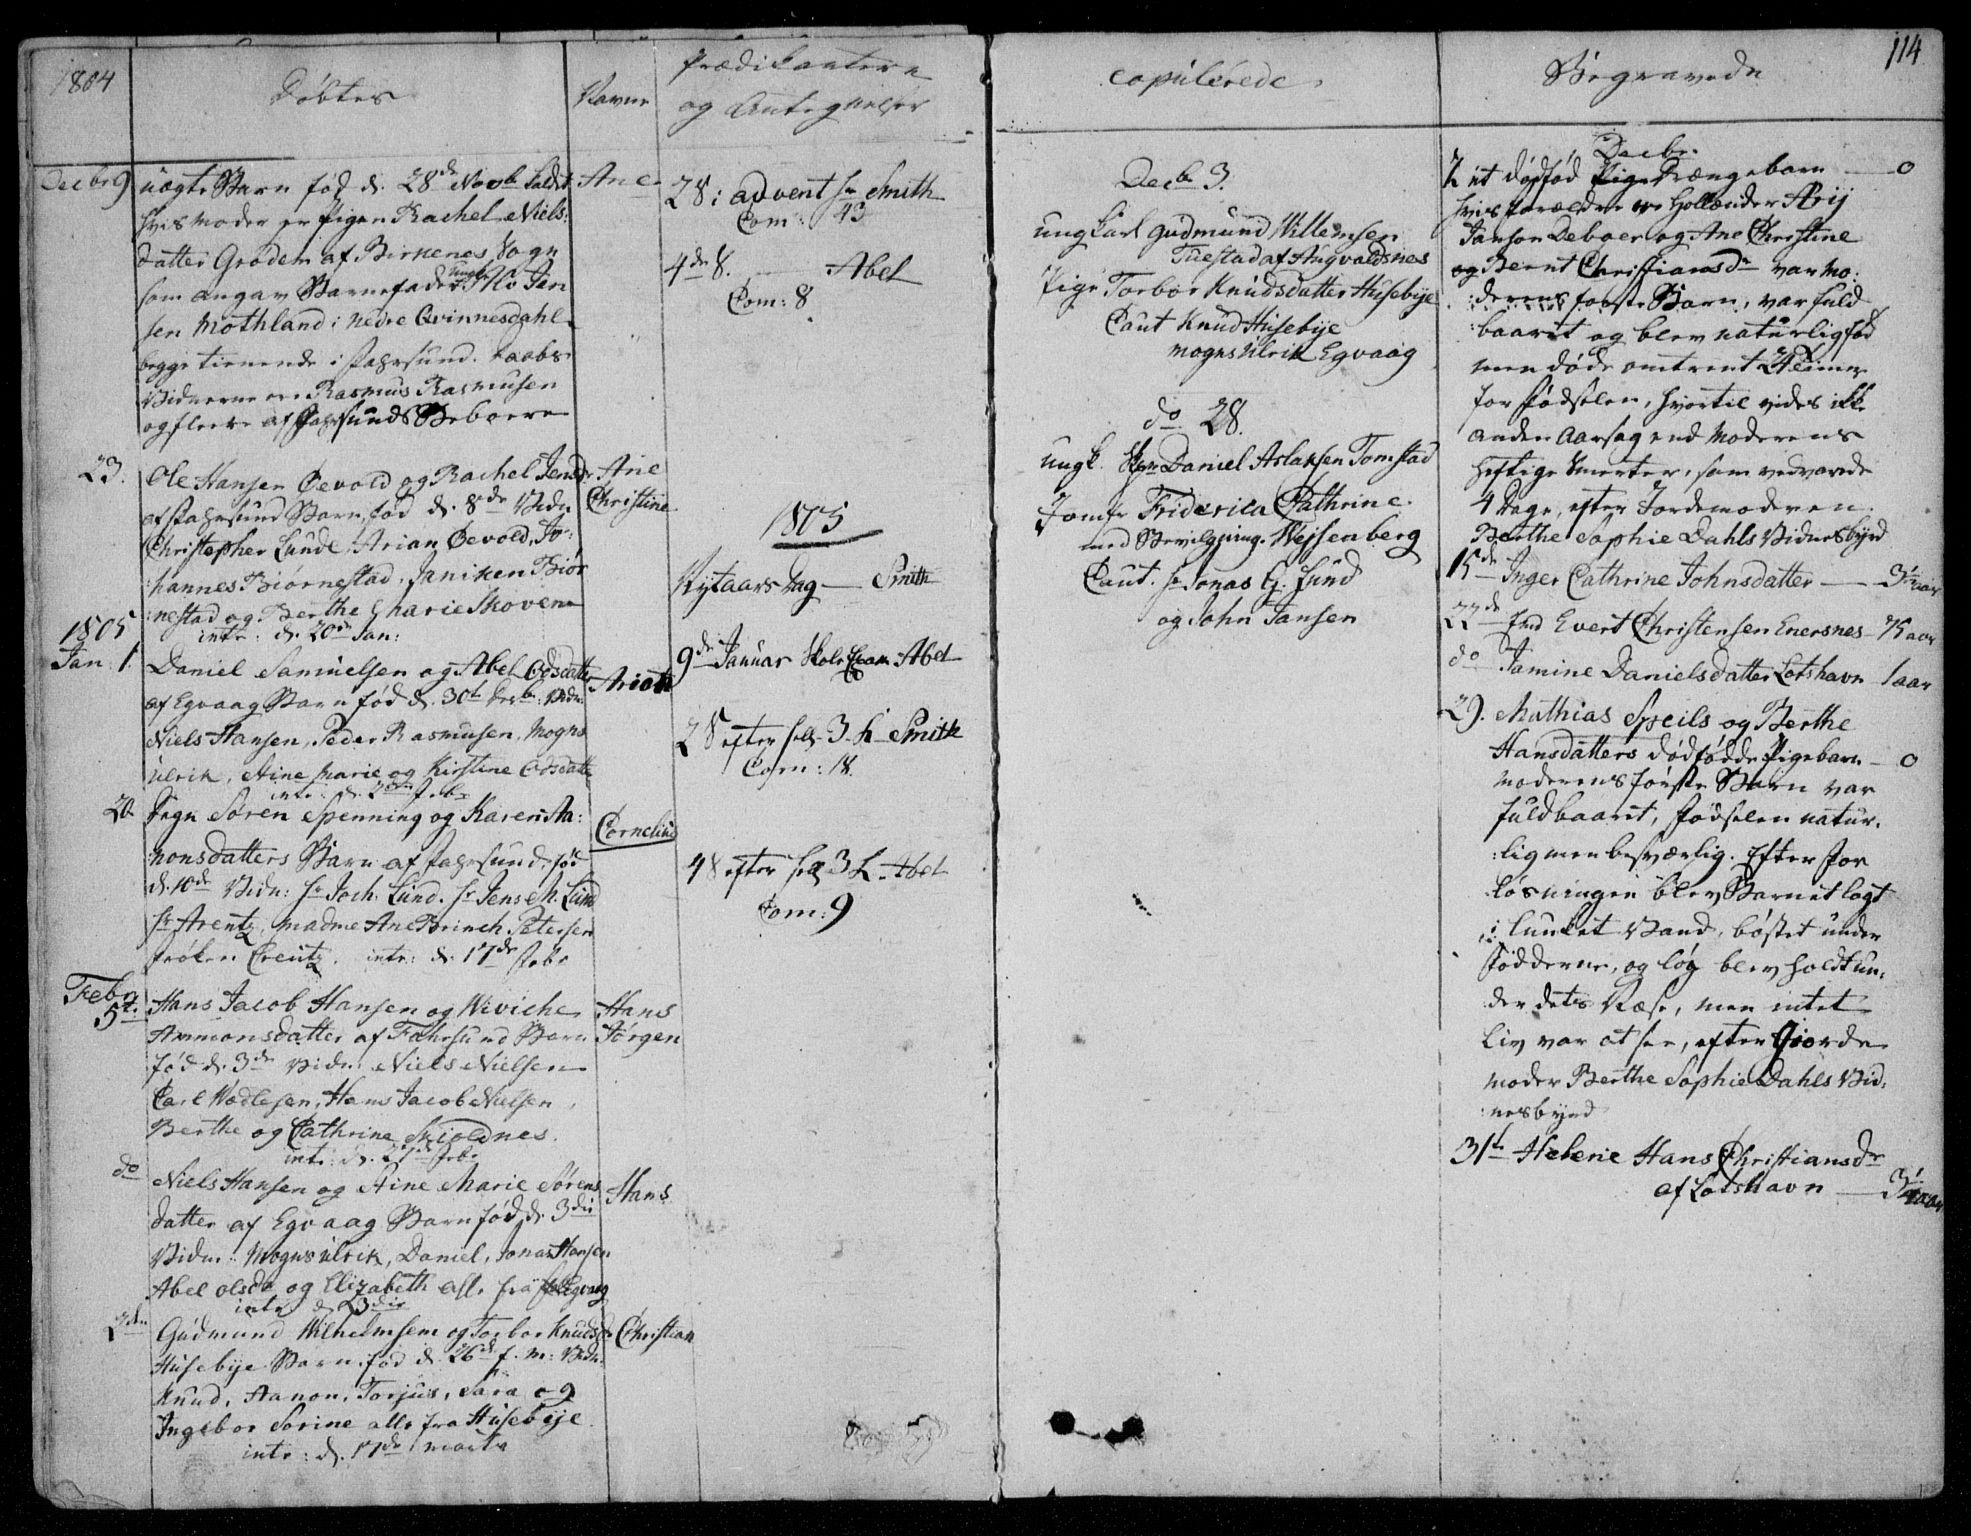 1804
Döbtes
Navne
Prædikantere
og Antegnelser
Decbr 9
uægte Barn fød d. 28de Novb kaldet
hvis moder er Pigen Rachel Niels:
datter Groden af Birkenes Sogn
som angav Barnefader Ungk. Jan
sen Mothland i nedre Qvinnesdahl
begge tienende i Fahrsund. Daabs
Vidnerne ere Rasmus Rasmusen
og fleere af Fahrsunds Beboere
Ane
23.
Ole Hansen Øevold og Rachel Jensdr
af Fahrsund Barn, fød d. 8de Vidn
Christopher Lunde, Arian Øevold, Jo:
hannes Biørnestad, Janiken Biør
nestad og Berthe Marie Skoven
intr: d. 20de Jan:
Ane
Christine
1805
Jan: 1.
Daniel Samuelsen og Abel Odsdatter
af Egvaag Barn fød d. 30t Decb: Vidn:
Niels Hansen, Peder Rasmusen, Mogns
Ulrik, Aine Marie og Kirstine Odsdatter
intr: d. Febr
20
Søren Spenning og Karen Aa:
nonsdatters Barn af Fahrsund, fød
d. 10de Vidn: Sr Joch. Lund. Sr Jens M. Lund
Sr Arentz, madme Ane Brinch Petersen
frøken Creutz. intr: d. 17de Febr
Cornelius
Febr.
5t.
Hans Jacob Hansen og Wiviche
Ammonsdatter af Fahrsund Barn
fød d. 3de Vidn: Niels Nielsen
Carl Wadlesen, Hans Jacob Nielsen,
Berthe og Cathrine Skioldnes.
intr: d. Febr
Hans
Jörgen
do
Niels Hansen og Aine Marie Sørens
datter af Egvaag Barn fød d. 3die
Vidn: Mogns Ulrik, Daniel, Jonas Hansen
Abel olsdr og Elizabeth alle fra Egvaag
intr d. 23die
Hans
Gudmund Wilhelmsen og Torbor Knudsdr
Husebye Barn. fød d. 26d f. m: Vidn:
Knud, Aanon, Torjus, Sara og
Ingebor Sorine alle fra Husebye.
intr: d. 17de marts
Christian
28: advent Sr Smith
Com: 43
4de 8. Abel
Com: 8
1805
Nytaars Dag Smith
9de Januar Skole Exam Abel
28 efter hel 3 K Smith
Com: 18.
48 efter hel 3 K. Abel
Com: 9
114
copulerede.
Decb 3.
ungkarl Gudmund Willemsen
Tuestad af Augvaldsnes
Pige Torbor Knudsdatter Husebye
Caut Knud Husebye
Mogns Ulrik Egvaag
do 28.
ungk. Daniel Aslaksen Tomstad
Jomfr Friderica Cathrine
med Bevilgning. Wejsenberg
Caut. Sr Jonas G. Lund
og John Jansen
Begravede
Decbr.
7 et dødfød Pige Drængebarn 0
hvis forældre ere Hollænder Arij
Janson Deboer og Ane Christine
og Bernt Christiansdr var mo:
:derens første Barn, var fuld
:baaret og blev naturlig fød
men døde omtrent 24 timer
for fødselen, hvortil vides ikke
anden aarsag end Moderens
heftige Smerter, som vedvarede
4 Dage, efter Jordemoderen
Berthe Sophie Dahls Vidnesbyrd
15de Inger Cathrine Johnsdatter 3 aar
22de Evert Christensen Enersnes 75 aar
do Jamine Danielsdatter Lotshavn 1 aar
29. Mathias Speils og Berthe
Hansdatters dødfødde Pigebarn 0
moderens første Barn var
fuldbaaret, fødselen natur:
:lig men besværlig. Efter for
løsningen blev Barnet lagt
i lunket Vand, børstet under
fødderne, og løg blev holdt un:
:der dets Næse, men intet
Liv var at see, efter Giorde
moder Berthe Sophie Dahls Vid:
:nesbyrd
31t Helene Hans Christiansdr
af Lotshavn 3 aar